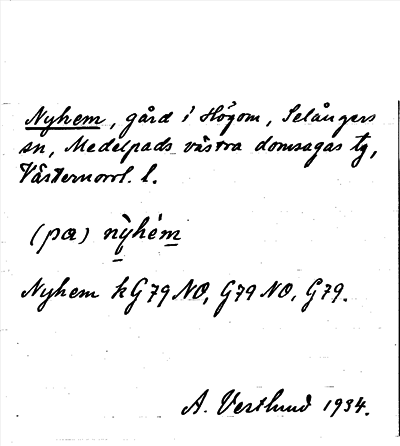 Nyhem, gård i Högom, Selångers
sn, Medelpads västra domsagas tg,
Västernorrl. l.
(pɑ) nỳhém
Nyhem kG79NO, G79NO, G79.
A. Vestlund 1934.